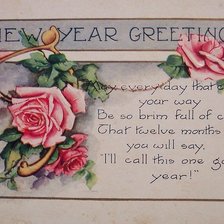 NEW YEAR GREETING
every day that
your way
Be so brim full of
That twelve months
you will say,
"I'll call this one
year!"